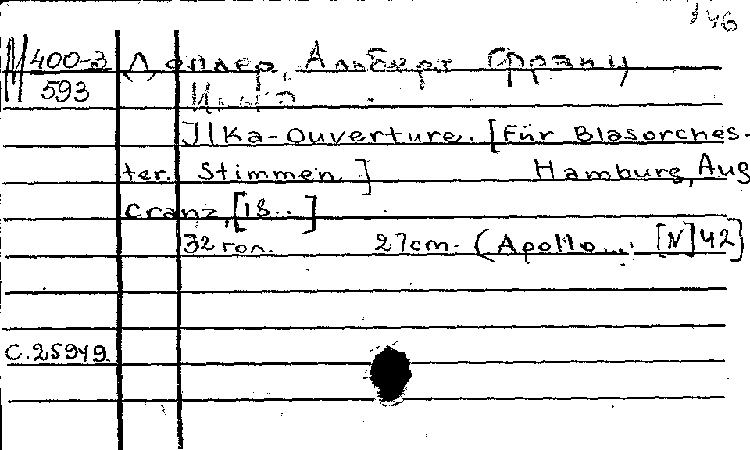 146
М 400-3 Доплер, Альберт Франц
593 Илька
Ilka-Ouverture. [Für Blasorches-
ter. Stimmen] Hamburg, Aug
Cranz, [18..]
32 гол. 27cm. (Apollo... [N] 42)
С.25949